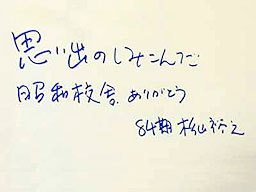 思い出のしみこんだ
昭和校舎、ありがとう
84期 杉山